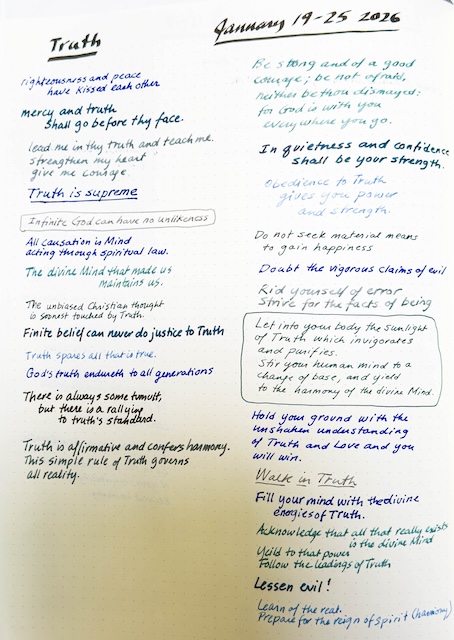 Truth
righteousness and peace
have kissed each other
mercy and truth
shall go before thy face.
lead me in thy truth and teach me.
strengthen my heart
give me courage.
Truth is supreme
Infinite God can have no unlikeness
All causation is Mind
acting through spiritual law.
The divine Mind that made us
maintains us.
The unbiased Christian thought
is soonest touched by Truth.
Finite belief can never do justice to Truth
Truth spares all that is true.
God's truth endureth to all generations
There is always some tumult,
but there is a rallying
to truth's standard.
Truth is affirmative and confers harmony.
This simple rule of Truth governs
all reality.
January 19-25 2026
Be strong and of a good
courage; be not afraid,
neither be thou dismayed:
for God is with you
everywhere you go.
In quietness and confidence
shall be your strength.
Obedience to Truth
gives you power
and strength.
Do not seek material means
to gain happiness
Doubt the vigorous claims of evil
Rid yourself of error
Strive for the facts of being
Let into your body the sunlight
of Truth which invigorates
and purifies.
Stir your human mind to a
change of base, and yield
to the harmony of the divine Mind.
Hold your ground with the
unshaken understanding
of Truth and Love and you
will win.
Walk in Truth
Fill your mind with the divine
energies of Truth.
Acknowledge that all that really exists
is the divine Mind
Yeild to that power
Follow the leadings of Truth
Lessen evil!
Learn of the real.
Prepare for the reign of spirit (harmony)